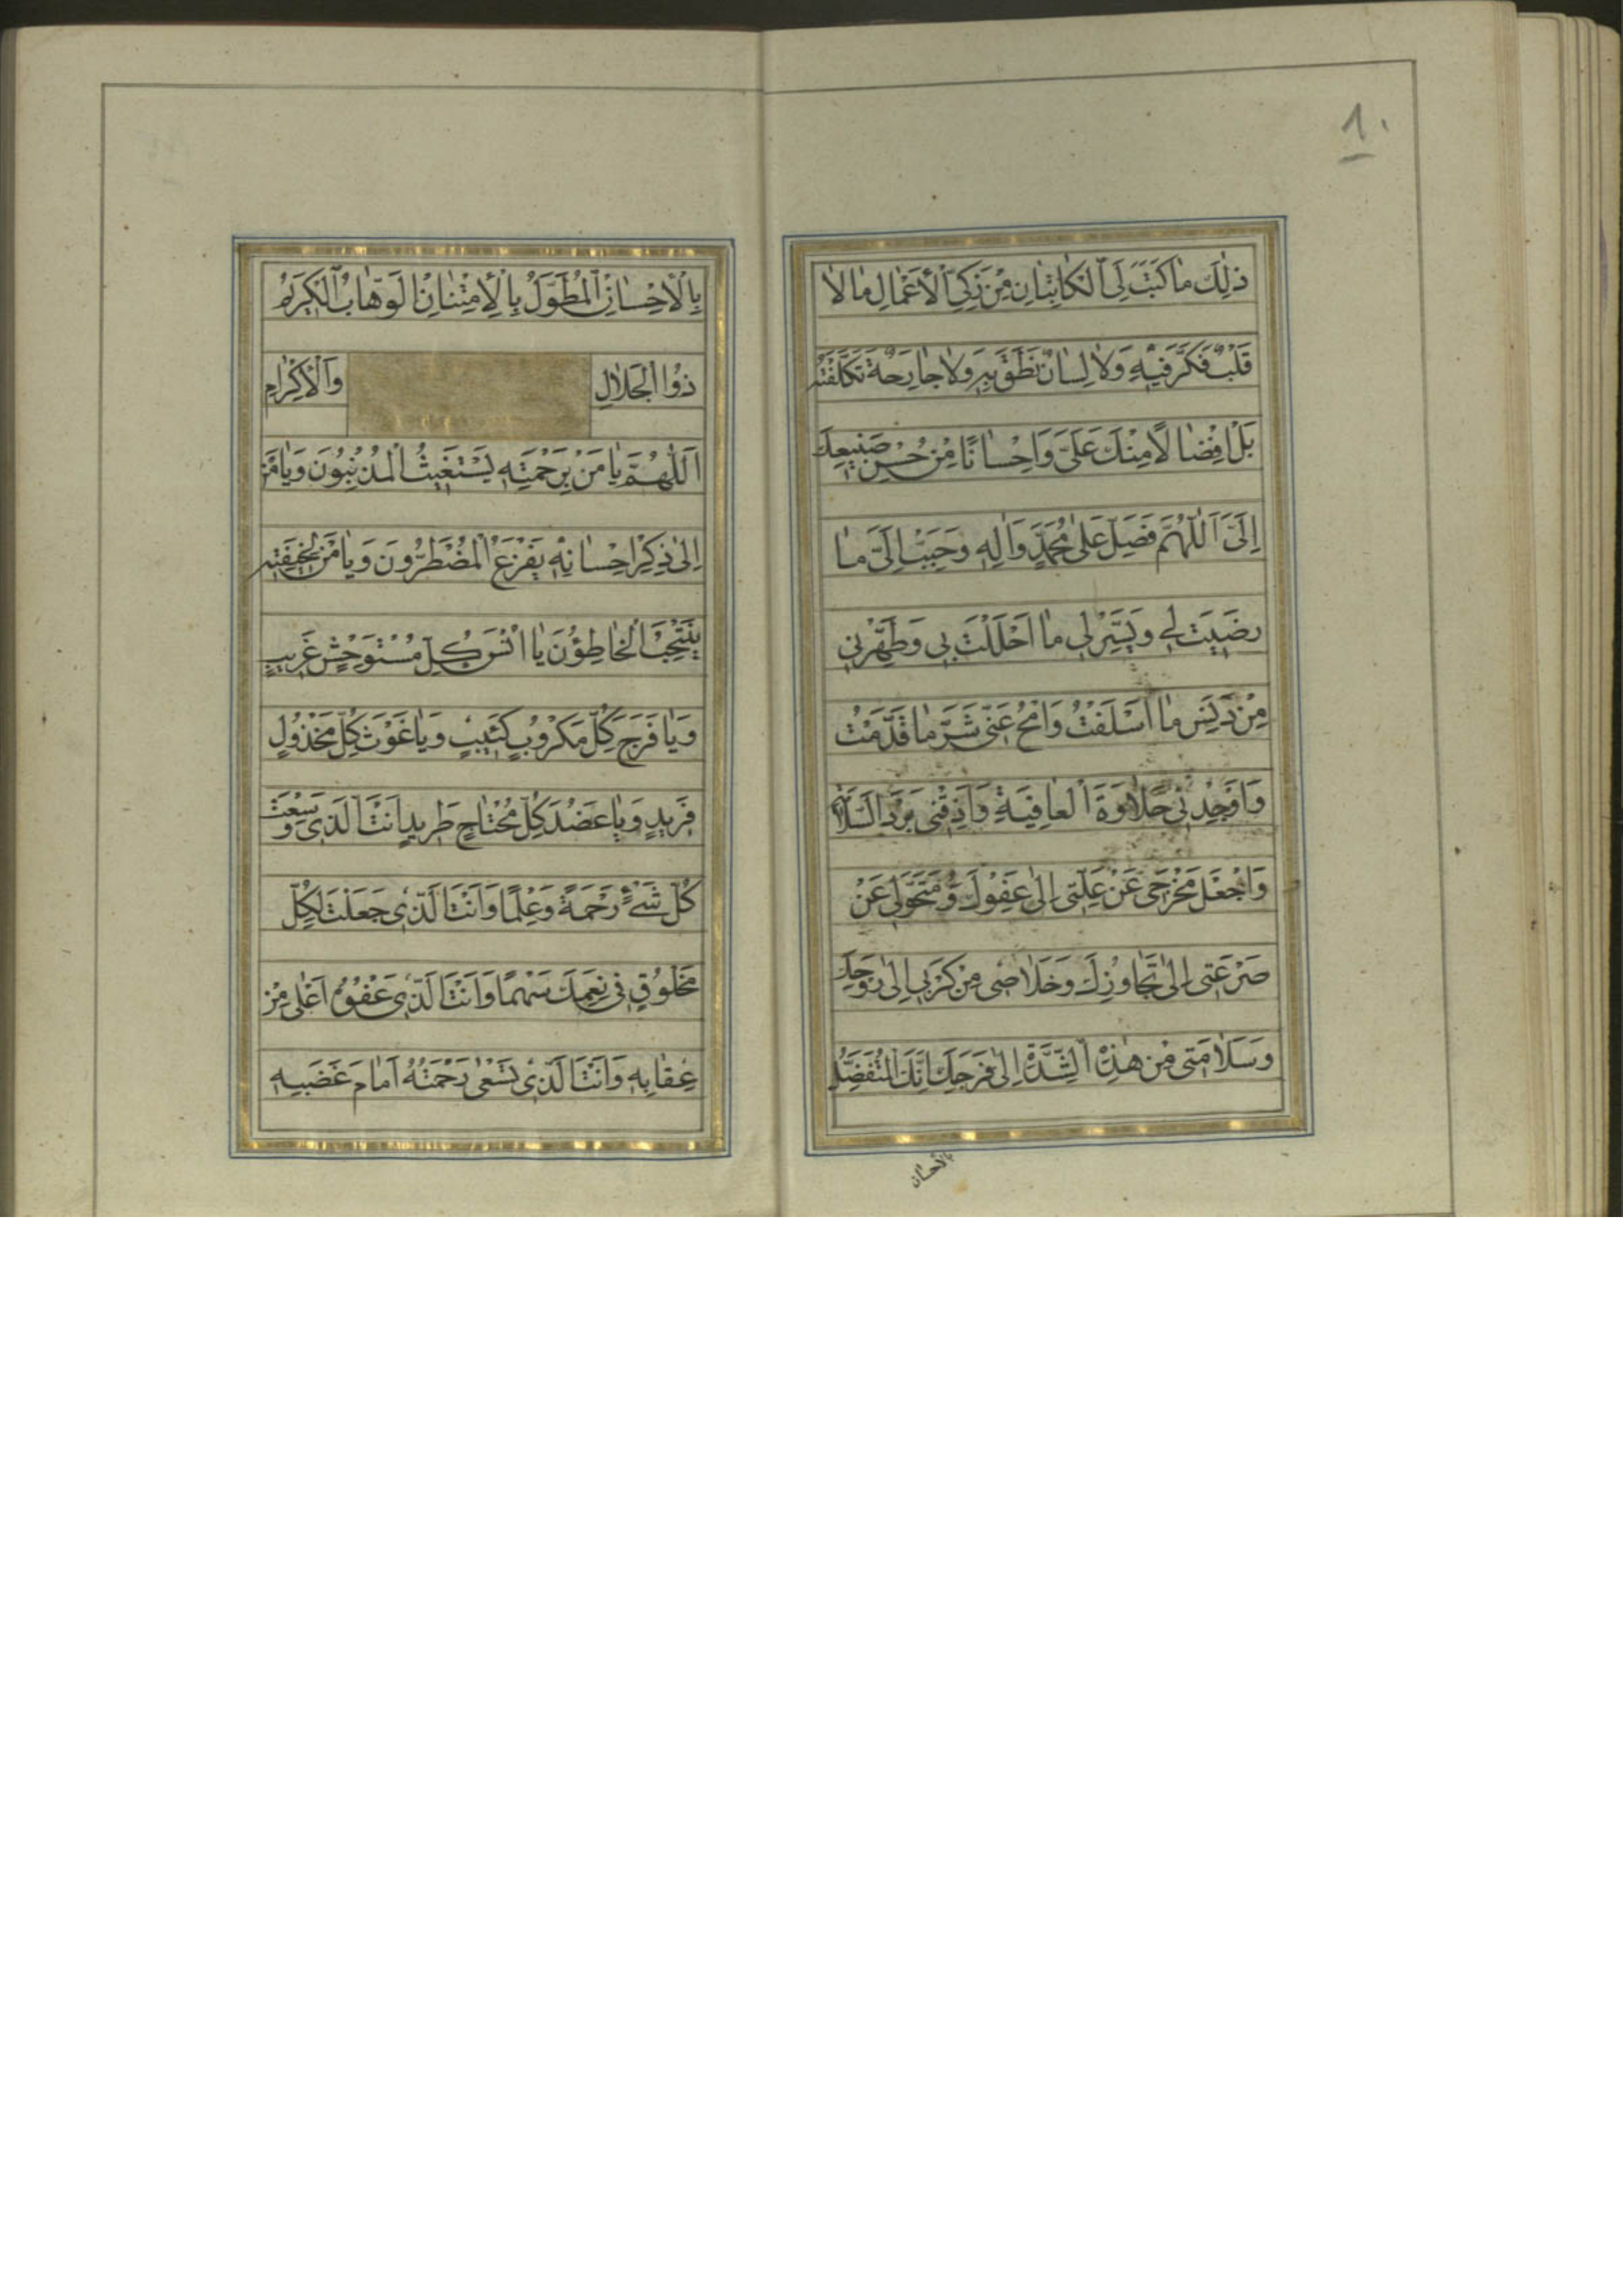 ١٠
ذٰلِكَ مٰا كَتَبَ لِیَ الْكٰاتِبٰانِ مِنْ زَكِیِّ الْأَعْمٰالِ مٰا لاٰ
قَلْبٌ فَكَّرَ فِيْهِ وَلاٰ لِسٰانٌ نَطَقَ بِهِ وَلاٰ جٰارِحَةٌ تَكَلَّفَتْهُ
بَلْ اِفْضٰالاً مِنْكَ عَلَیَّ وَاِحْسٰانًا مِنْ حُسْنِ صَنِيعِكَ
اِلَیَّ اَللّٰهُمَّ فَصَلِّ عَلیٰ مُحَمَّدٍ وَاٰلِهِ وَحَبِّبْ اِلَیَّ مٰا
رَضِيتَ لِی وَيَسِّرْ لِی مٰا اَحْلَلْتَ بِی وَطَهِّرْنِی
مِنْ دَنَسِ مٰا اَسْلَفْتُ وَامْحُ عَنِّی شَرَّ مٰا قَدَّمْتُ
وَاَوْجِدْنِی حَلاٰوَةَ الْعٰافِيَةِ وَاَذِقْنِی بَرْدَ السَّلاٰمَةِ
وَاجْعَلْ مَخْرَجِی عَنْ عِلَّتِی اِلیٰ عَفْوِكَ وَمُتَحَوَّلِی عَنْ
صَرْعَتِی اِلیٰ تَجٰاوُزِكَ وَخَلاٰصِی مِنْ كَرْبِی اِلیٰ رَوْحِكَ
وَسَلاٰمَتِی مِنْ هٰذِهِ الشِّدَّةِ اِلیٰ فَرَجِكَ اِنَّكَ الْمُتَفَضِّلُ
بالاحسان
بِالْاِحْسٰانِ الْمُتَطَوِّلُ بِالْاِمْتِنٰانِ الْوَهّٰابُ الْكَرِيمُ
ذُو الْجَلاٰلِ وَالْاِكْرٰامِ
اَللّٰهُمَّ يٰا مَنْ بِرَحْمَتِهِ يَسْتَغِيثُ الْمُذْنِبُونَ وَيٰا مَنْ
اِلیٰ ذِكْرِ اِحْسٰانِهِ يَفْزَعُ الْمُضْطَرُّونَ وَيٰا مَنْ لِخِيفَتِهِ
يَنْتَحِبُ الْخٰاطِؤُنَ يٰا اُنْسَ كُلِّ مُسْتَوْحِشٍ غَرِيبٍ
وَيٰا فَرَجَ كُلِّ مَكْرُوبٍ كَئِيبٍ وَيٰا غَوْثَ كُلِّ مَخْذُولٍ
فَرِيدٍ وَيٰا عَضُدَ كُلِّ مُحْتٰاجٍ طَرِيدٍ اَنْتَ الَّذِی وَسِعْتَ
كُلَّ شَیْءٍ رَحْمَةً وَعِلْمًا وَاَنْتَ الَّذِی جَعَلْتَ لِكُلِّ
مَخْلُوقٍ فِی نِعَمِكَ سَهْمًا وَاَنْتَ الَّذِی عَفْوُهُ اَعْلیٰ مِنْ
عِقٰابِهِ وَاَنْتَ الَّذِی تَسْعیٰ رَحْمَتُهُ اَمٰامَ غَضَبِهِ